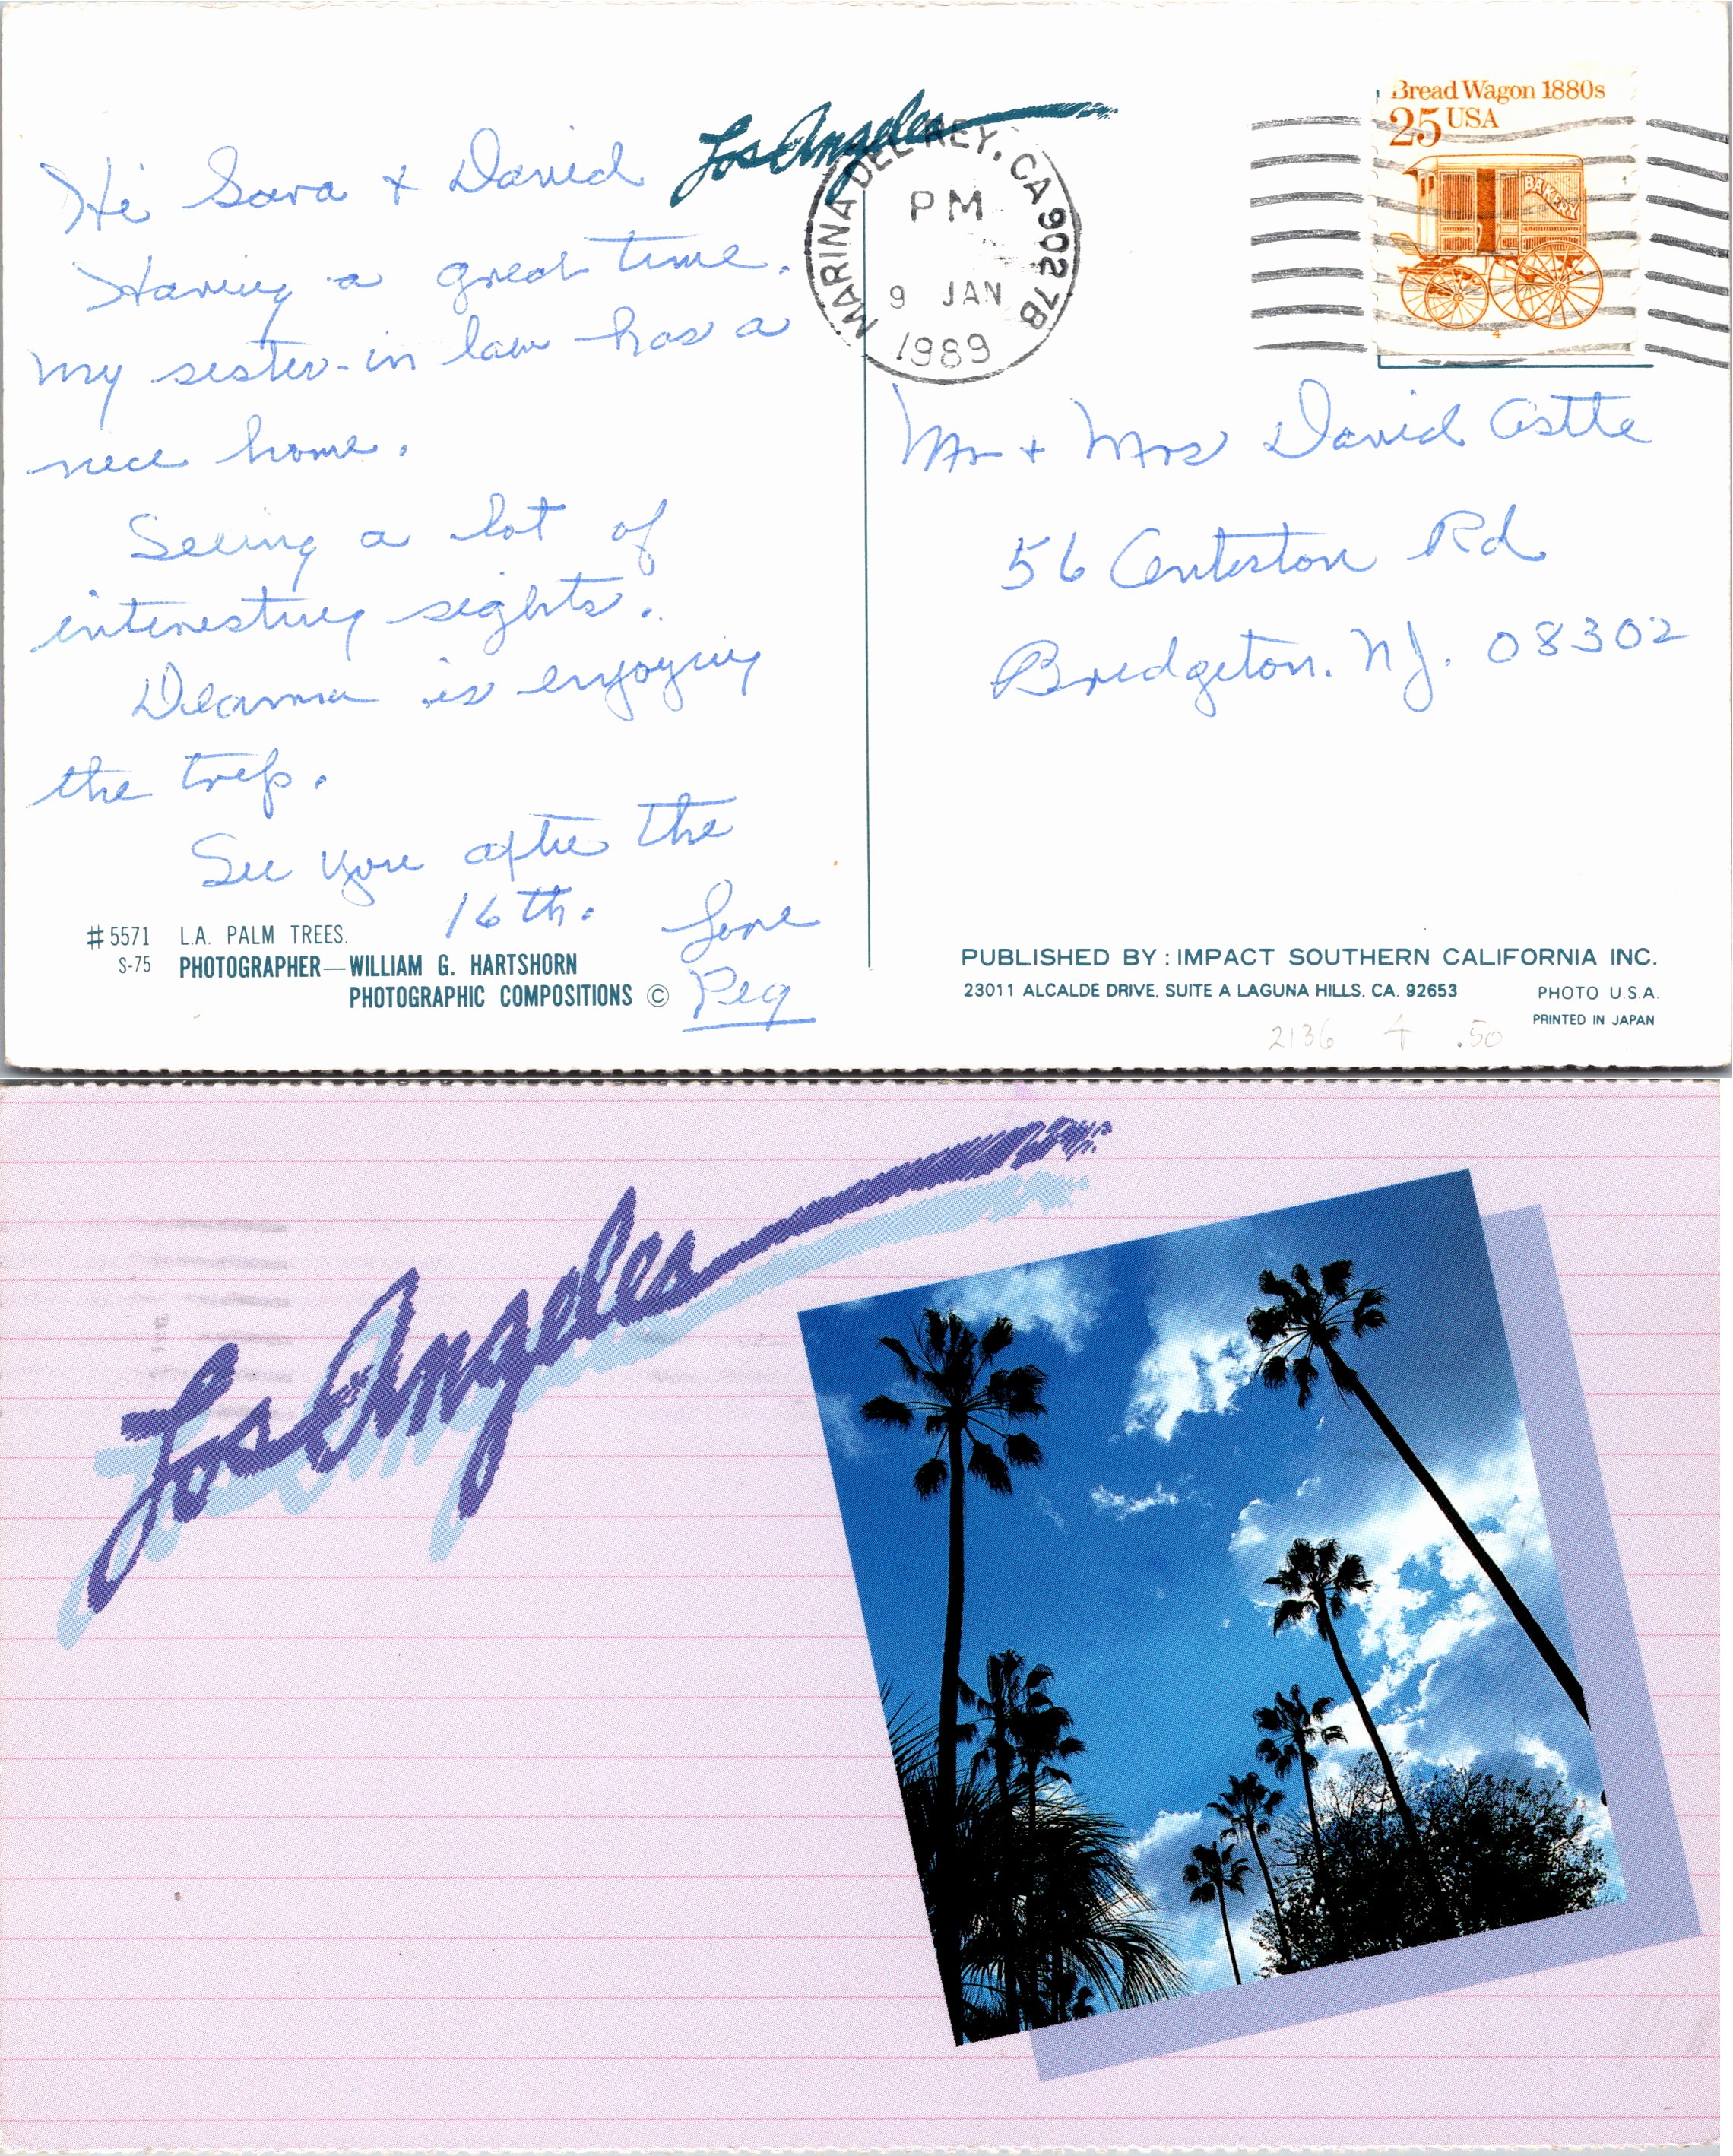 Los Angeles
Hi Sara + David
Having a great time.
My sister-in law has a
nice home.
Seeing a lot of
interesting sights.
Deanna is enjoying
the trip.
See you after the
16th.
Love
Peg
#5571 L.A. PALM TREES.
S-75 PHOTOGRAPHER—WILLIAM G. HARTSHORN
PHOTOGRAPHIC COMPOSITIONS ©
MARINA DEL REY, CA 9027B
PM
9 JAN
1989
Bread Wagon 1880s
25 USA
BAKERY
4
Mr + Mrs David
56 Centerton Rd
Bridgeton. N.J. 08302
PUBLISHED BY: IMPACT SOUTHERN CALIFORNIA INC.
23011 ALCALDE DRIVE, SUITE A LAGUNA HILLS, CA. 92653
PHOTO U.S.A.
PRINTED IN JAPAN
2136 4 .50
Los Angeles